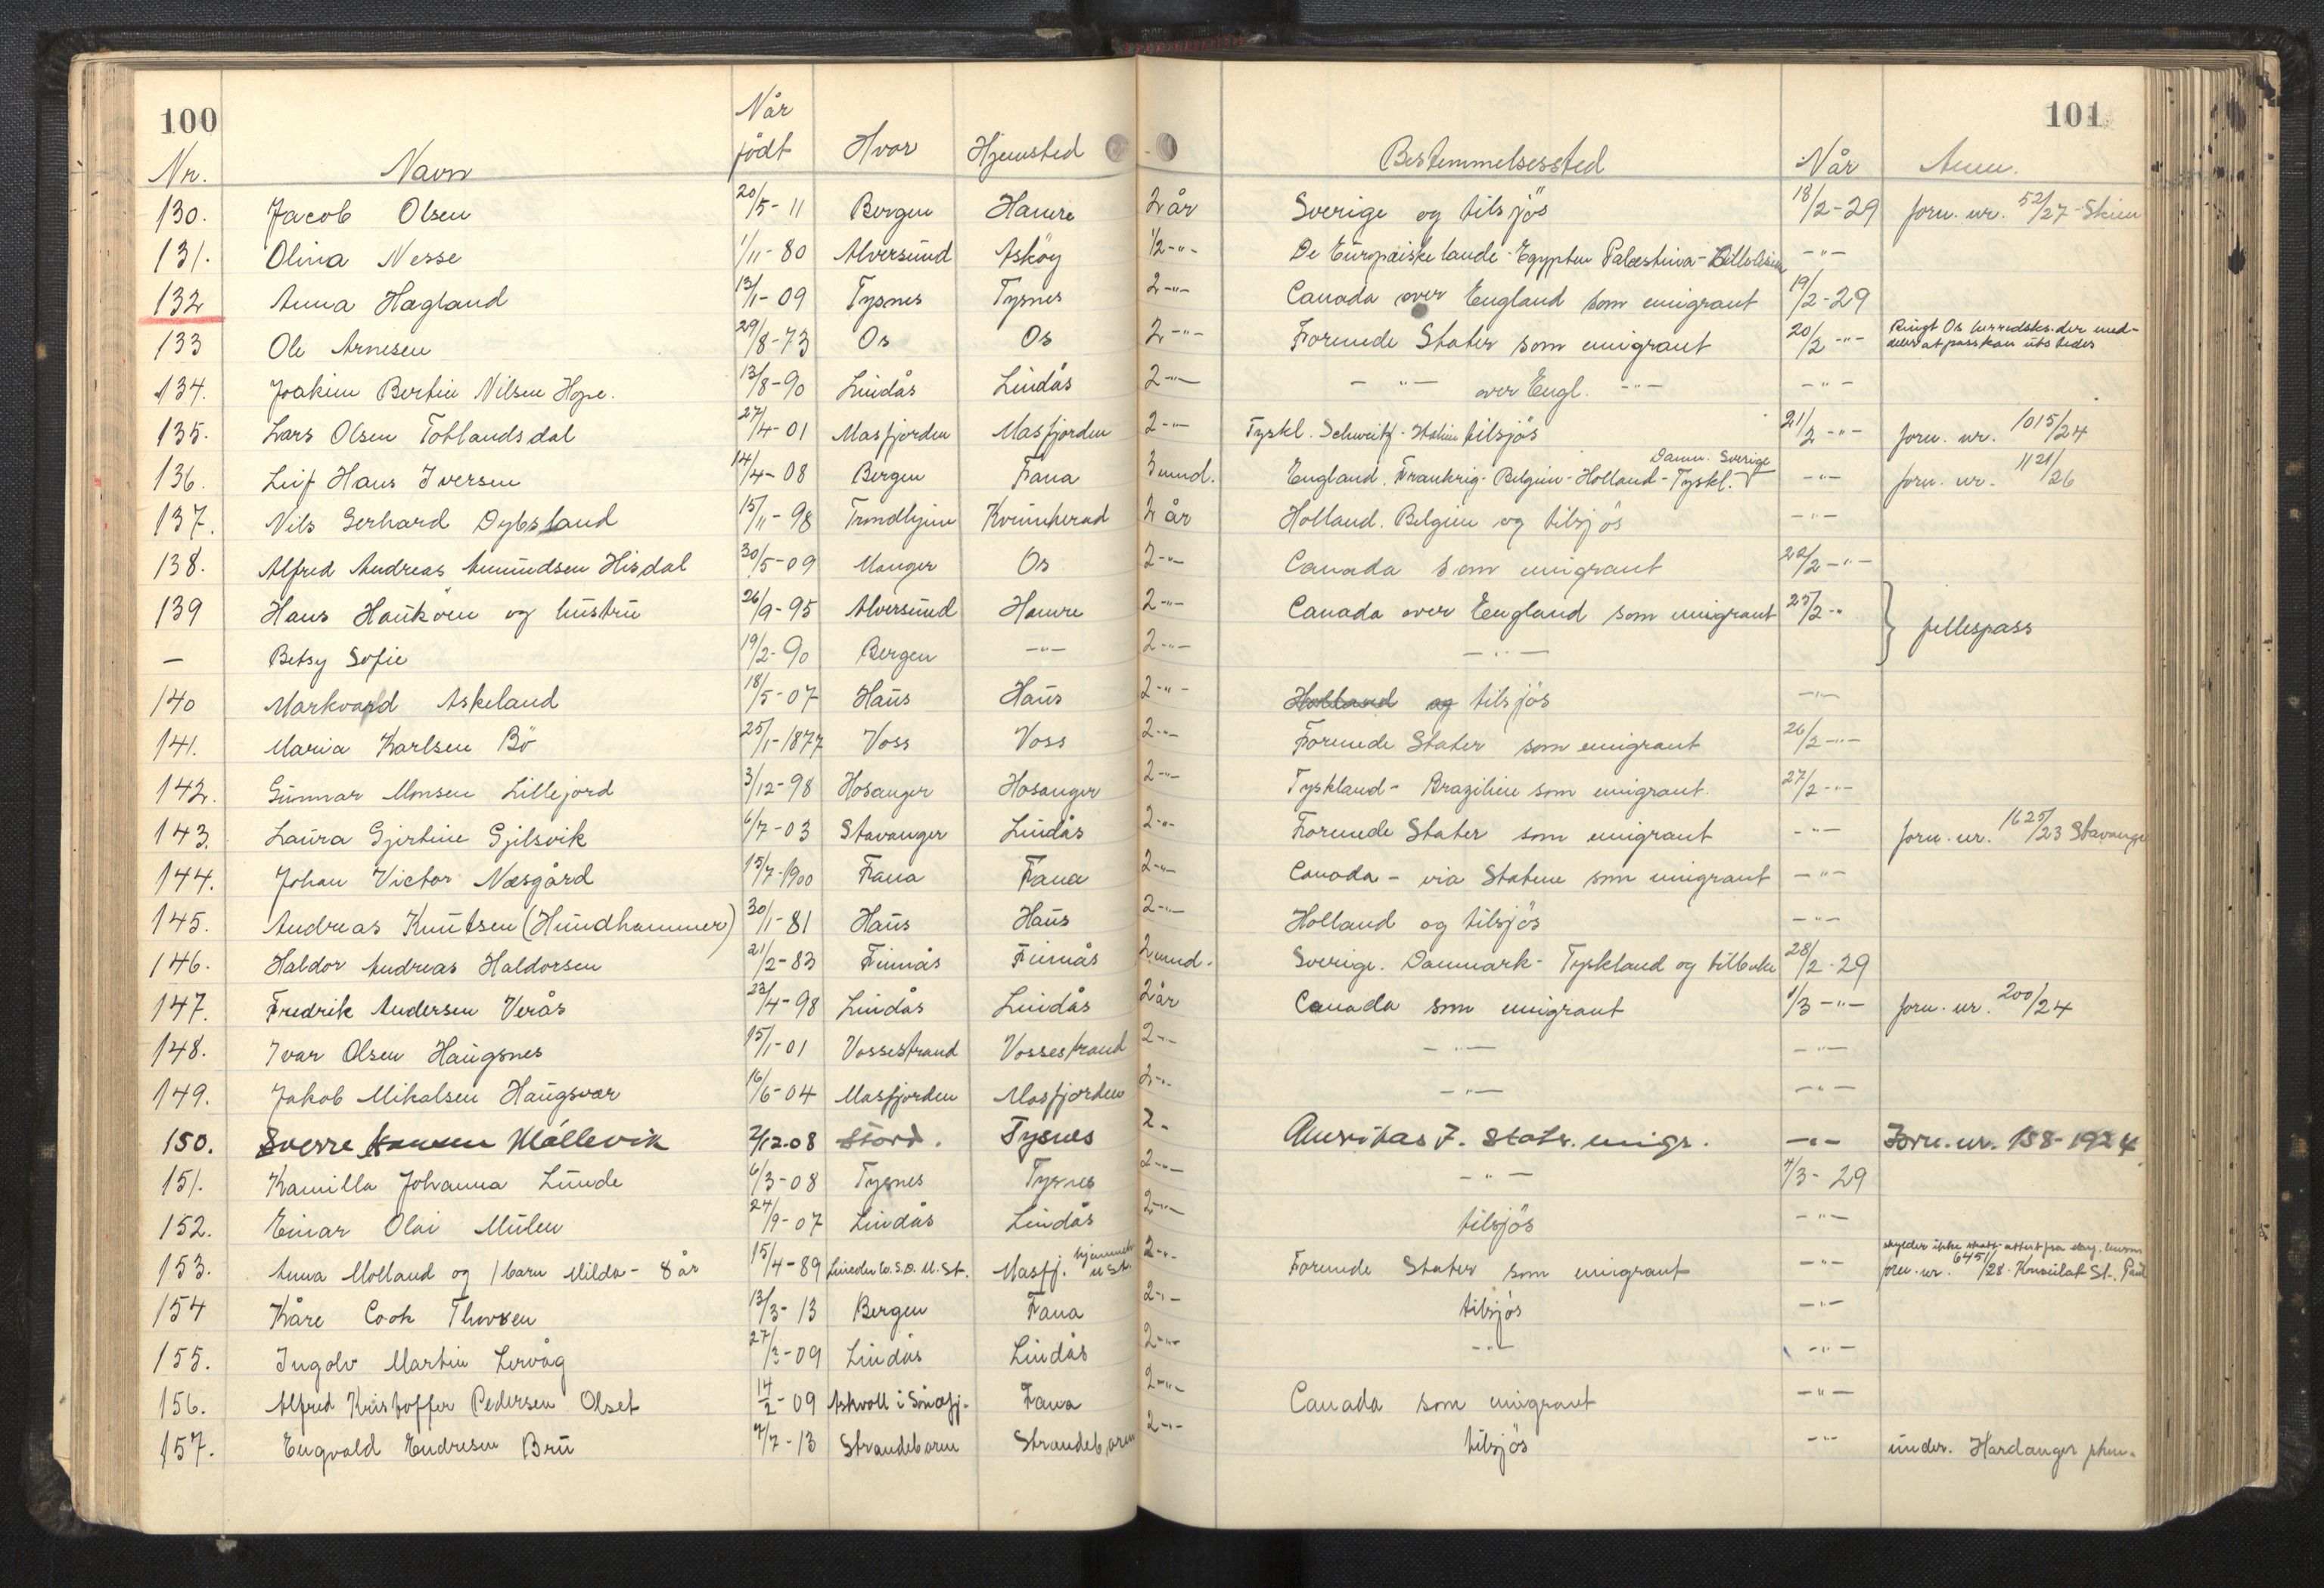 100
101
Nr. Navn Når födt Hvor Hjemsted Bestemmelsessted Når Anm.
130. Jacob Olsen 20/5-11 Bergen Hamre 2 år Sverige og tilsjös 18/2-29 forn. nr. 52/27 Skien
131. Olina Nesse 1/11-80 Alversund Asköy 1/2-"- De Europæiske lande - Egypten Palæstina - Lilleasien -"-
132 Anna Hagland 13/1-09 Tysnes Tysnes 2-"- Canada over England som emigrant 19/2-29
133 Ole Arnesen 29/8-73 Os Os 2-"- Forenede Stater som emigrant 20/2-"- Ringt Os herredsks. der med-
deler at pass kan utstedes
134. Joakim Bertin Nilsen Hope. 13/8-90 Lindås Lindås 2-"- -"- over Engl. -"- -"-
135. Lars Olsen Totlandsdal 27/4-01 Masfjorden Masfjorden 2-"- Tyskl. Schweitz - Italien tilsjös 21/2-"- forn. nr. 1015/24
136. Leif Hans Iversen 14/4-08 Bergen Fana 3 mnd. England. Frankrig - Belgien - Holland - Tyskl. Danm. Sverige -"- forn. nr. 1121/26
137. Nils Gerhard Dybsland 15/11-98 Trondhjem Kvinnherad 2 år Holland. Belgien og tilsjös -"-
138. Alfred Andreas Amundsen Hisdal 30/5-09 Manger Os 2-"- Canada som emigrant 22/2-"-
139 Hans Haukøen og hustru 26/9-95 Alversund Hamre 2-"- Canada over England som emigrant 25/2-" fellespass
- Betsy Sofie 19/2-90 Bergen -"- 2-"- -"-
140 Markvard Askeland 18/5-07 Haus Haus 2-"- Holland og tilsjös -"-
141. Maria Karlsen Bö 25/1-1877 Voss Voss 2-"- Forenede Stater som emigrant 26/2-"-
142. Gunnar Monsen Lillejord 3/12-98 Hosanger Hosanger 2-"- Tyskland - Brazilien som emigrant. 27/2-"-
143. Laura Gjertine Gjilsvik 6/7-03 Stavanger Lindås 2-"- Forenede Stater som emigrant -"- forn. nr. 1625/23 Stavanger
144. Johan Victor Næsgård 15/7-1900 Fana Fana 2-"- Canada - via Statene som emigrant -"-
145. Andreas Knutsen (Hundhammer) 30/1-81 Haus Haus 2-"- Holland og tilsjös -"-
146. Haldor Andreas Haldorsen 21/2-83 Finnås Finnås 2 mnd. Sverige. Danmark - Tyskland og tilbake 28/2-29
147. Fredrik Andersen Verås 23/4-98 Lindås Lindås 2 år Canada som emigrant 1/3-"- forn. nr. 200/24
148. Ivar Olsen Haugsnes 15/1-01 Vossestrand Vossestrand 2-"- -"- -"-
149. Jakob Mikalsen Haugsvær 16/6-04 Masfjorden Masfjorden 2-"- -"- -"-
150. Sverre Hansen Möllevik 2/12-08 Stord. Tysnes 2- Amerikas F. Stater. emigr. -"- Forn. nr. 158-1924.
151. Kamilla Johanna Lunde 6/3-08 Tysnes Tysnes 2-"- -"- 4/3-29
152. Einar Olai Mulen 24/9-07 Lindås Lindås 2-"- tilsjös -"-
153. Anna Molland og 1 barn Milda - 8 år 15/4-89 Lincoln Co. S.D. U.St. Masfj. 2-"- Forenede Stater som emigrant -"- skylder ikke skatt
forn. nr. 6451/28. Konsulat St. Paul
154 Kåre Cook Thorsen 13/3-13 Bergen Fana 2-"- tilsjös -"-
155. Ingolv Martin Lervåg 27/2-09 Lindås Lindås 2-"- -"- -"-
156. Alfred Kristoffer Pedersen Olset 14/2-09 Askvoll i Sönnfj. Fana 2-"- Canada som emigrant -"-
157. Engvald Endresen Bru 7/7-13 Strandebarm Strandebarm 2-"- tilsjös -"- under. Hardanger